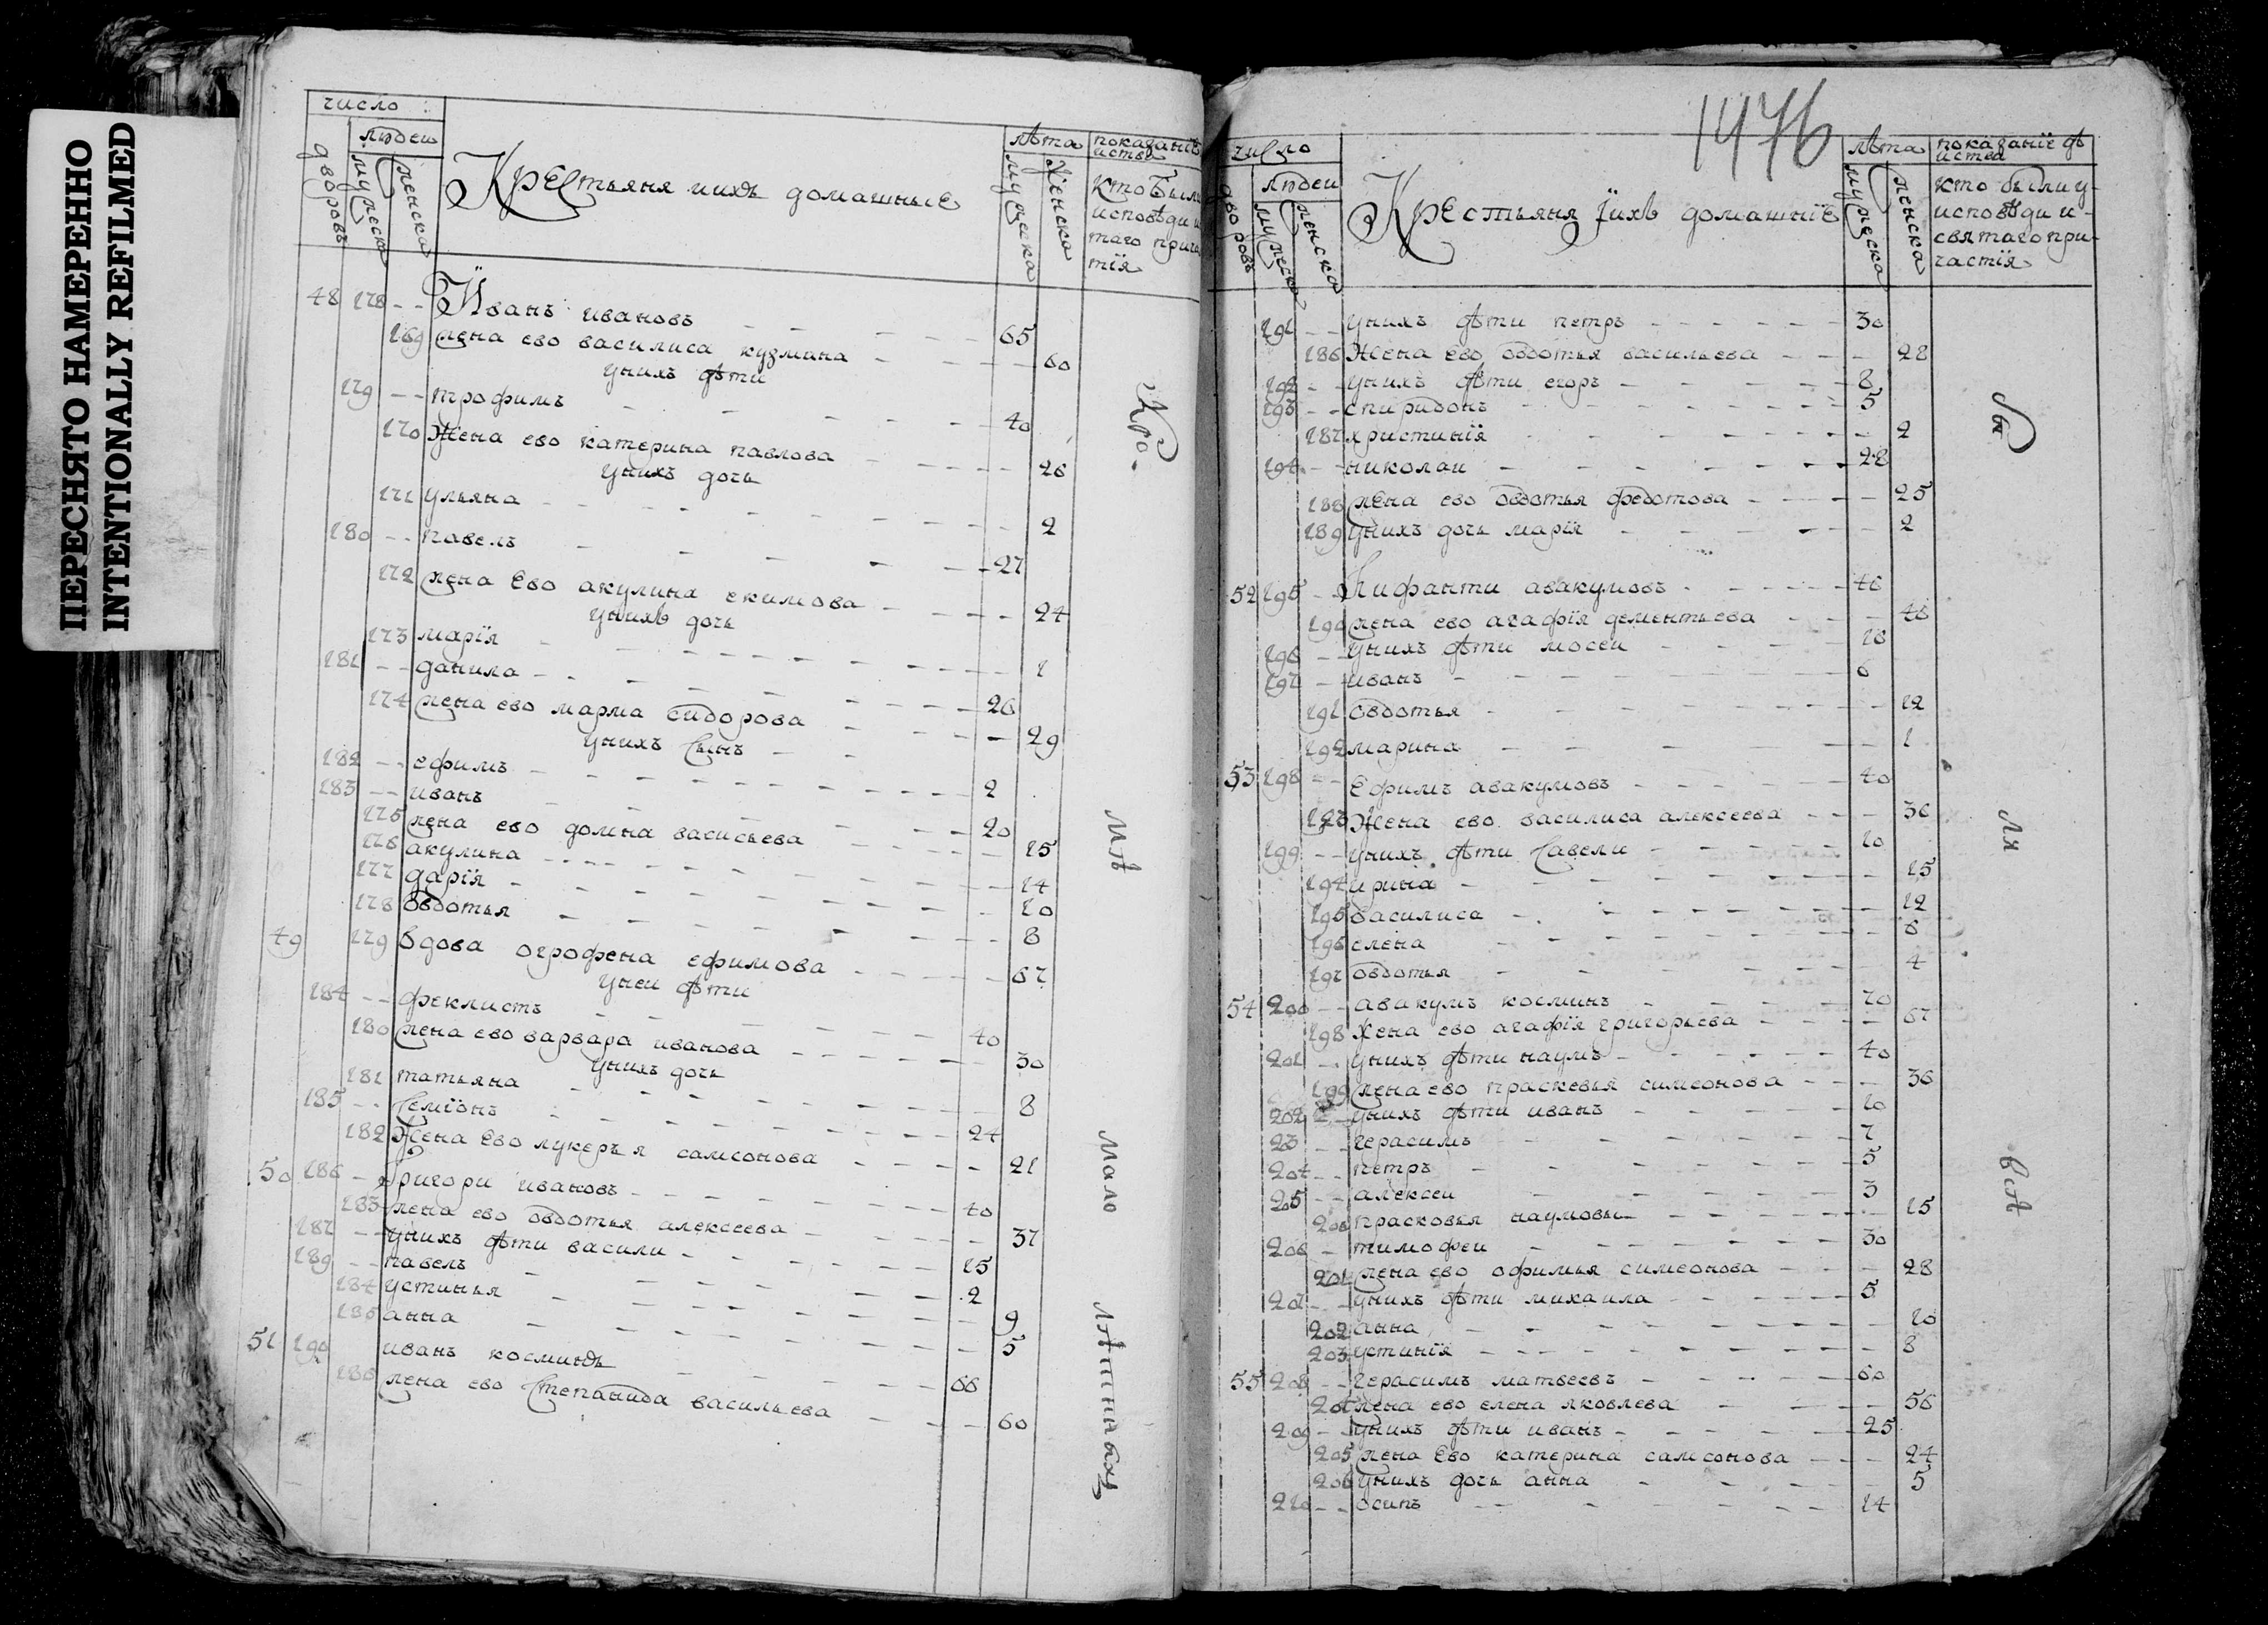 ПЕРЕСНЯТО НАМЕРЕННО
INTENTIONALLY REFILMED
число
людеи
дворовъ
мужеска
женска
Крестьяня ихъ домашные
лѣта
мужеска
женска
показанiе
иства
кто были
исповѣди и
таго прича
тiя
48 178 -- Иванъ ивановъ 65
169 жена ево василиса кузмина 60
унихъ дѣти
179 -- трофимъ 40
170 Жена ево катерина павлова 26
унихъ дочь
171 ульяна 2
180 -- павелъ 27
172 жена Ево акулина екимова 24
унихъ дочь
173 марiя 1
181 -- данила 26
174 жена ево марѳа сидорова 29
унихъ сынъ
182 -- ефимъ 2
183 -- иванъ 20
175 жена ево домна васильева 25
176 акулина 14
177 дарiя 10
178 овдотья 8
49 179 вдова огрофена ефимова 67
унеи дѣти
184 -- феклистъ 40
180 жена ево варвара иванова 30
унихъ дочь
181 татьяна 8
185 -- семiонъ 24
182 Жена Ево лукерья самсонова 21
50 186 -- григори ивановъ 40
183 жена ево овдотья алексеева 37
187 -- унихъ дѣти васили 15
189 -- павелъ 2
184 устинья 9
185 анна 5
51 190 иванъ косминъ 66
186 жена ево степанида васильева 60
Кро.
мѣ
мало
лѣтныхъ
1476
число
людеи
дворовъ
мужеска
женска
Крестьяня iихъ домашнiе
лѣта
мужеска
женска
показанiе дѣ
иства
кто были у-
исповѣди и-
святаго при-
частiя
191 -- унихъ дѣти петръ 30
186 Жена ево овдотья васильева 28
192 -- унихъ дѣти егоръ 8
193 -- спиридонъ 5
187 христинiя 2
194 -- николаи 28
188 жена ево овдотья федотова 25
189 унихъ дочь марiя 2
52 195 -- Нифанти авакумовъ 46
190 жена ево агафiя дементьева 46
196 -- унихъ дѣти мосеи 18
197 -- иванъ 6
191 овдотья 12
192 марина 1
53 198 -- Ефимъ авакумовъ 40
193 Жена ево василиса алексеева 36
199 -- унихъ дѣти савели 10
194 ирина 15
195 василиса 12
196 елена 6
197 овдотья 4
54 200 -- авакумъ косминъ 70
198 Жена ево агафiя григорьева 67
201 -- унихъ дѣти наумъ 40
199 жена ево праскевья симеонова 36
202 -- унихъ дѣти иванъ 10
23 -- герасимъ 7
204 -- петръ 5
205 -- алексеи 3
200 прасковья наумовы 15
206 -- тимофеи 30
201 жена ево офимья симеонова 28
207 -- унихъ дѣти михаила 5
202 анна 10
203 устинiя 8
55 208 -- герасимъ матвеевъ 60
204 жена ево елена яковлева 56
209 -- унихъ дѣти иванъ 25
205 жена Ево катерина самсонова 24
206 унихъ дочь анна 5
210 -- осипъ 14
бы
ля
всѣ